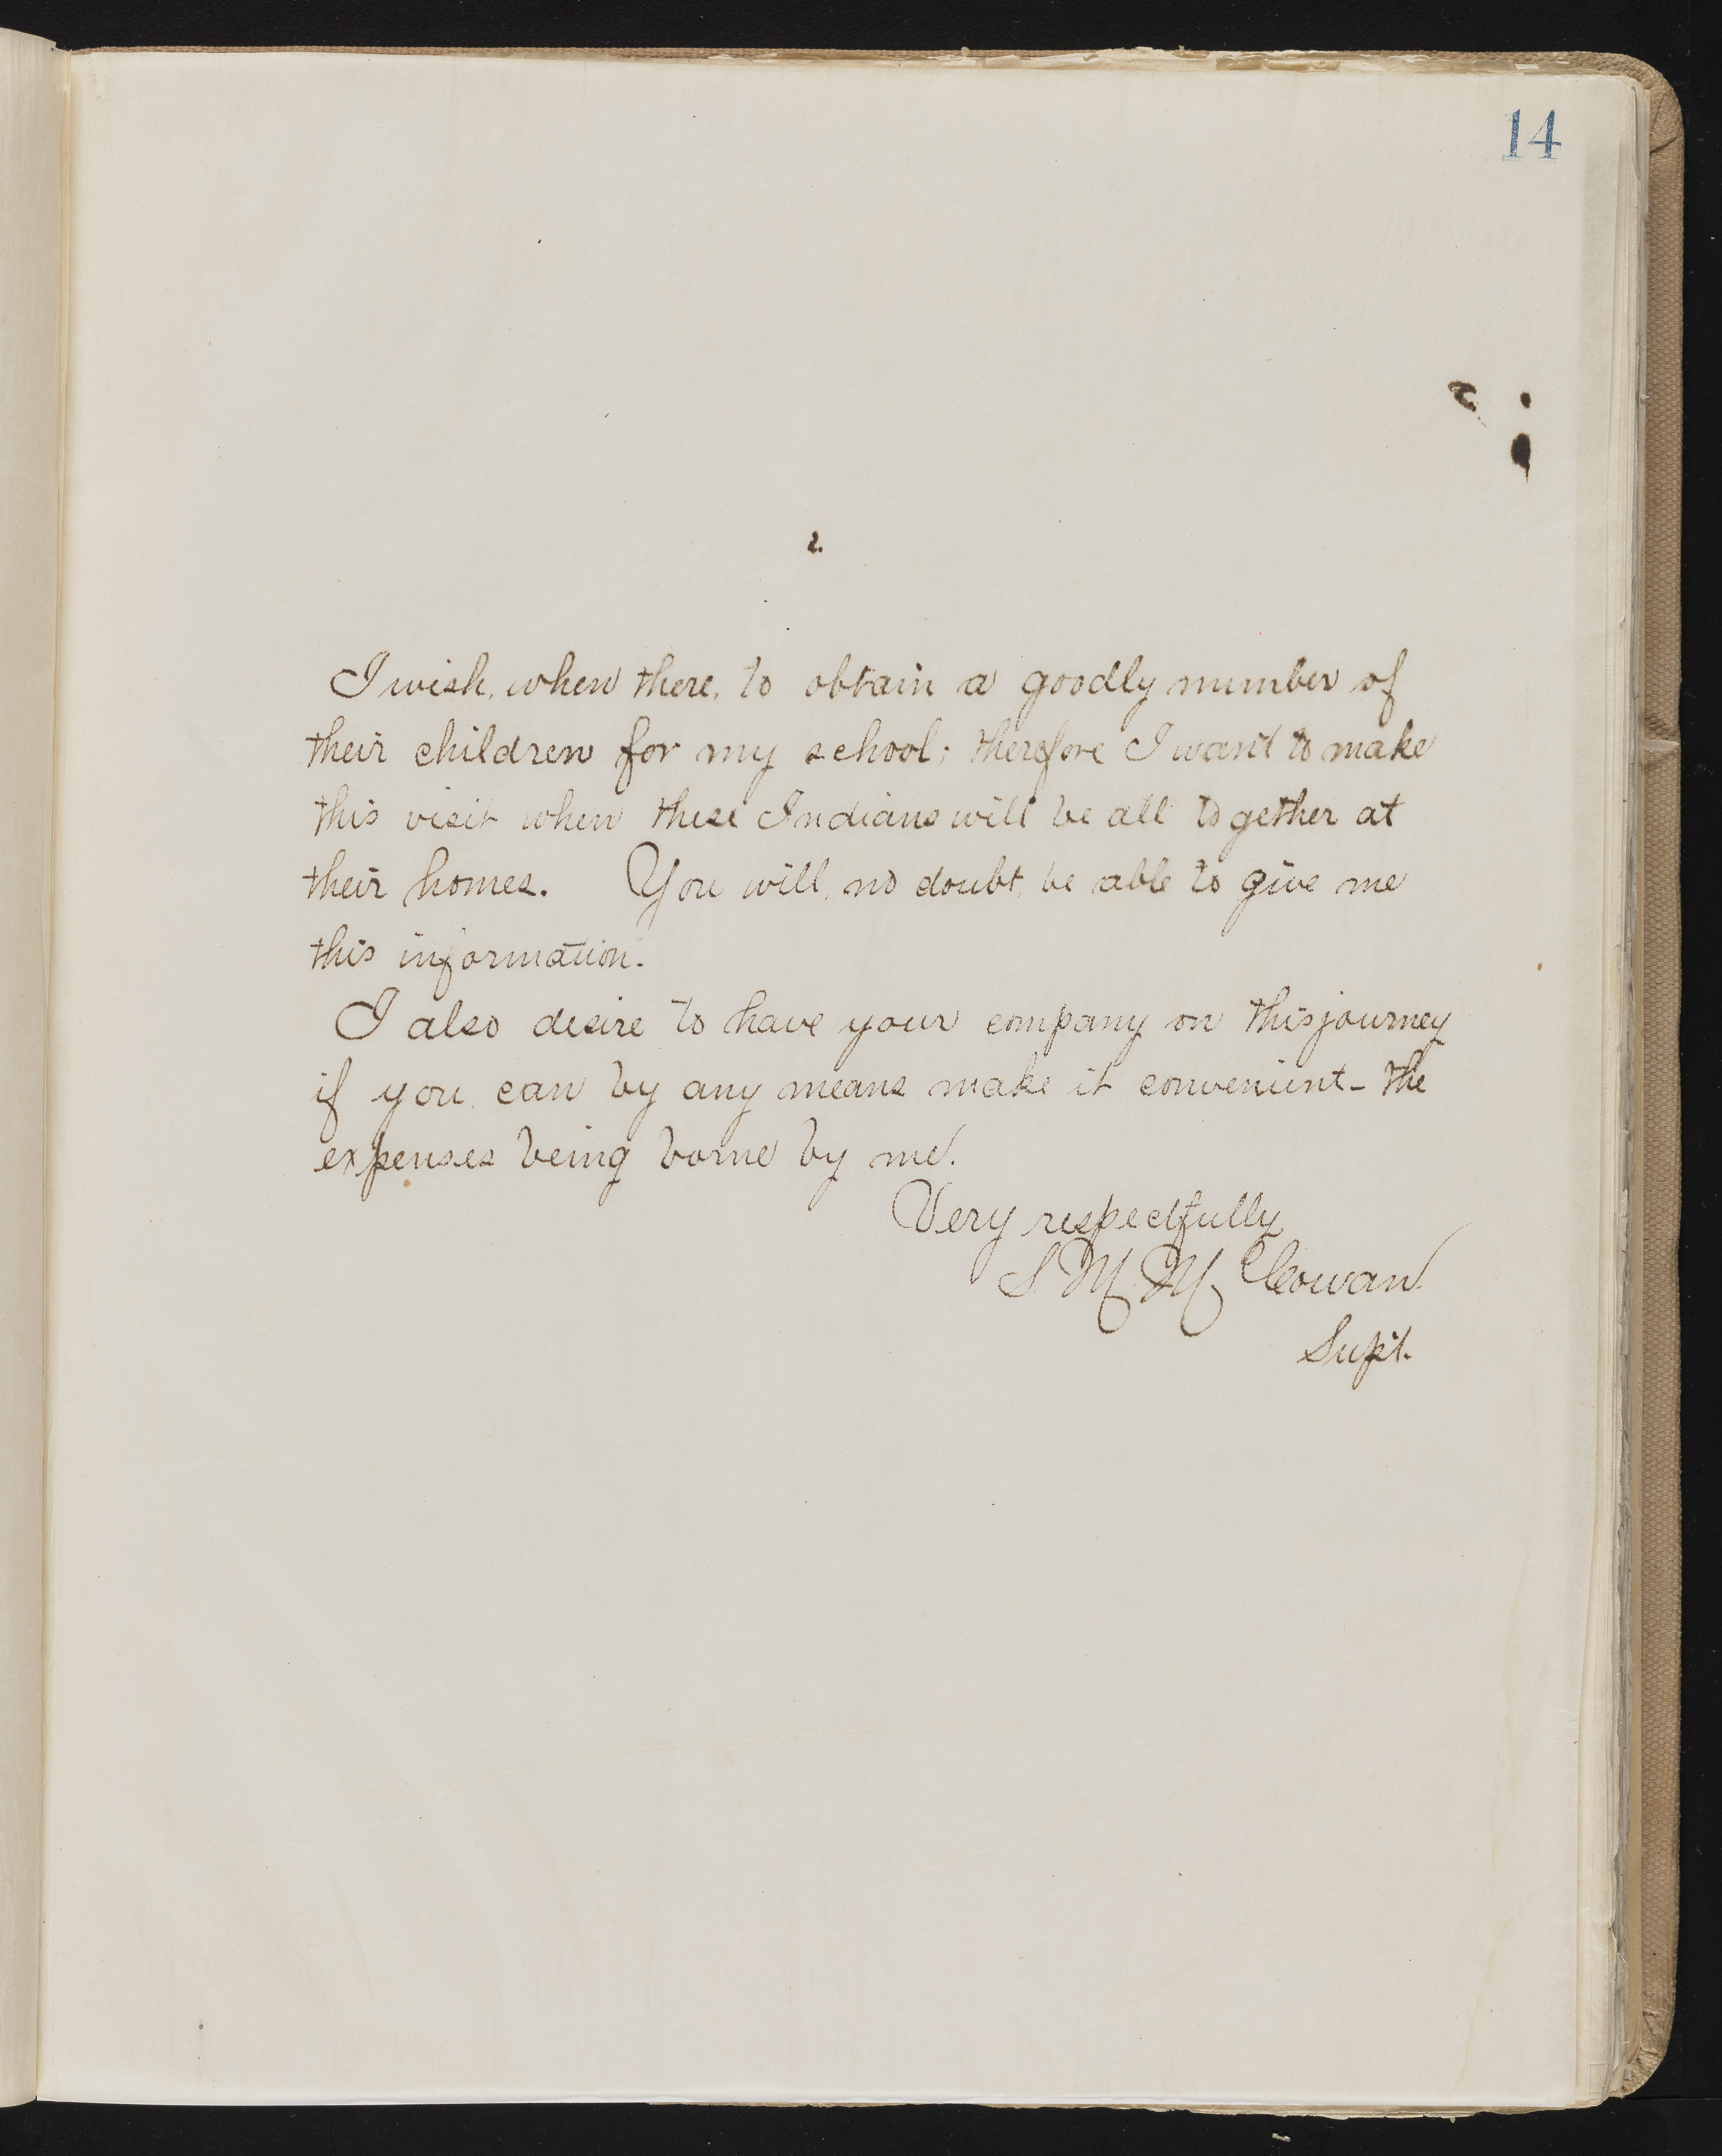 14
2.
I wish, when there, to obtain a goodly number of
their children for my school; therefore I want to make
this visit when these Indians will be all together at
their homes. You will, no doubt, be able to give me
this information.
I also desire to have your company on this journey
if you can by any means make it convenient - the
expenses being borne by me.
Very respectfully
S. M. McCowan
Supt.